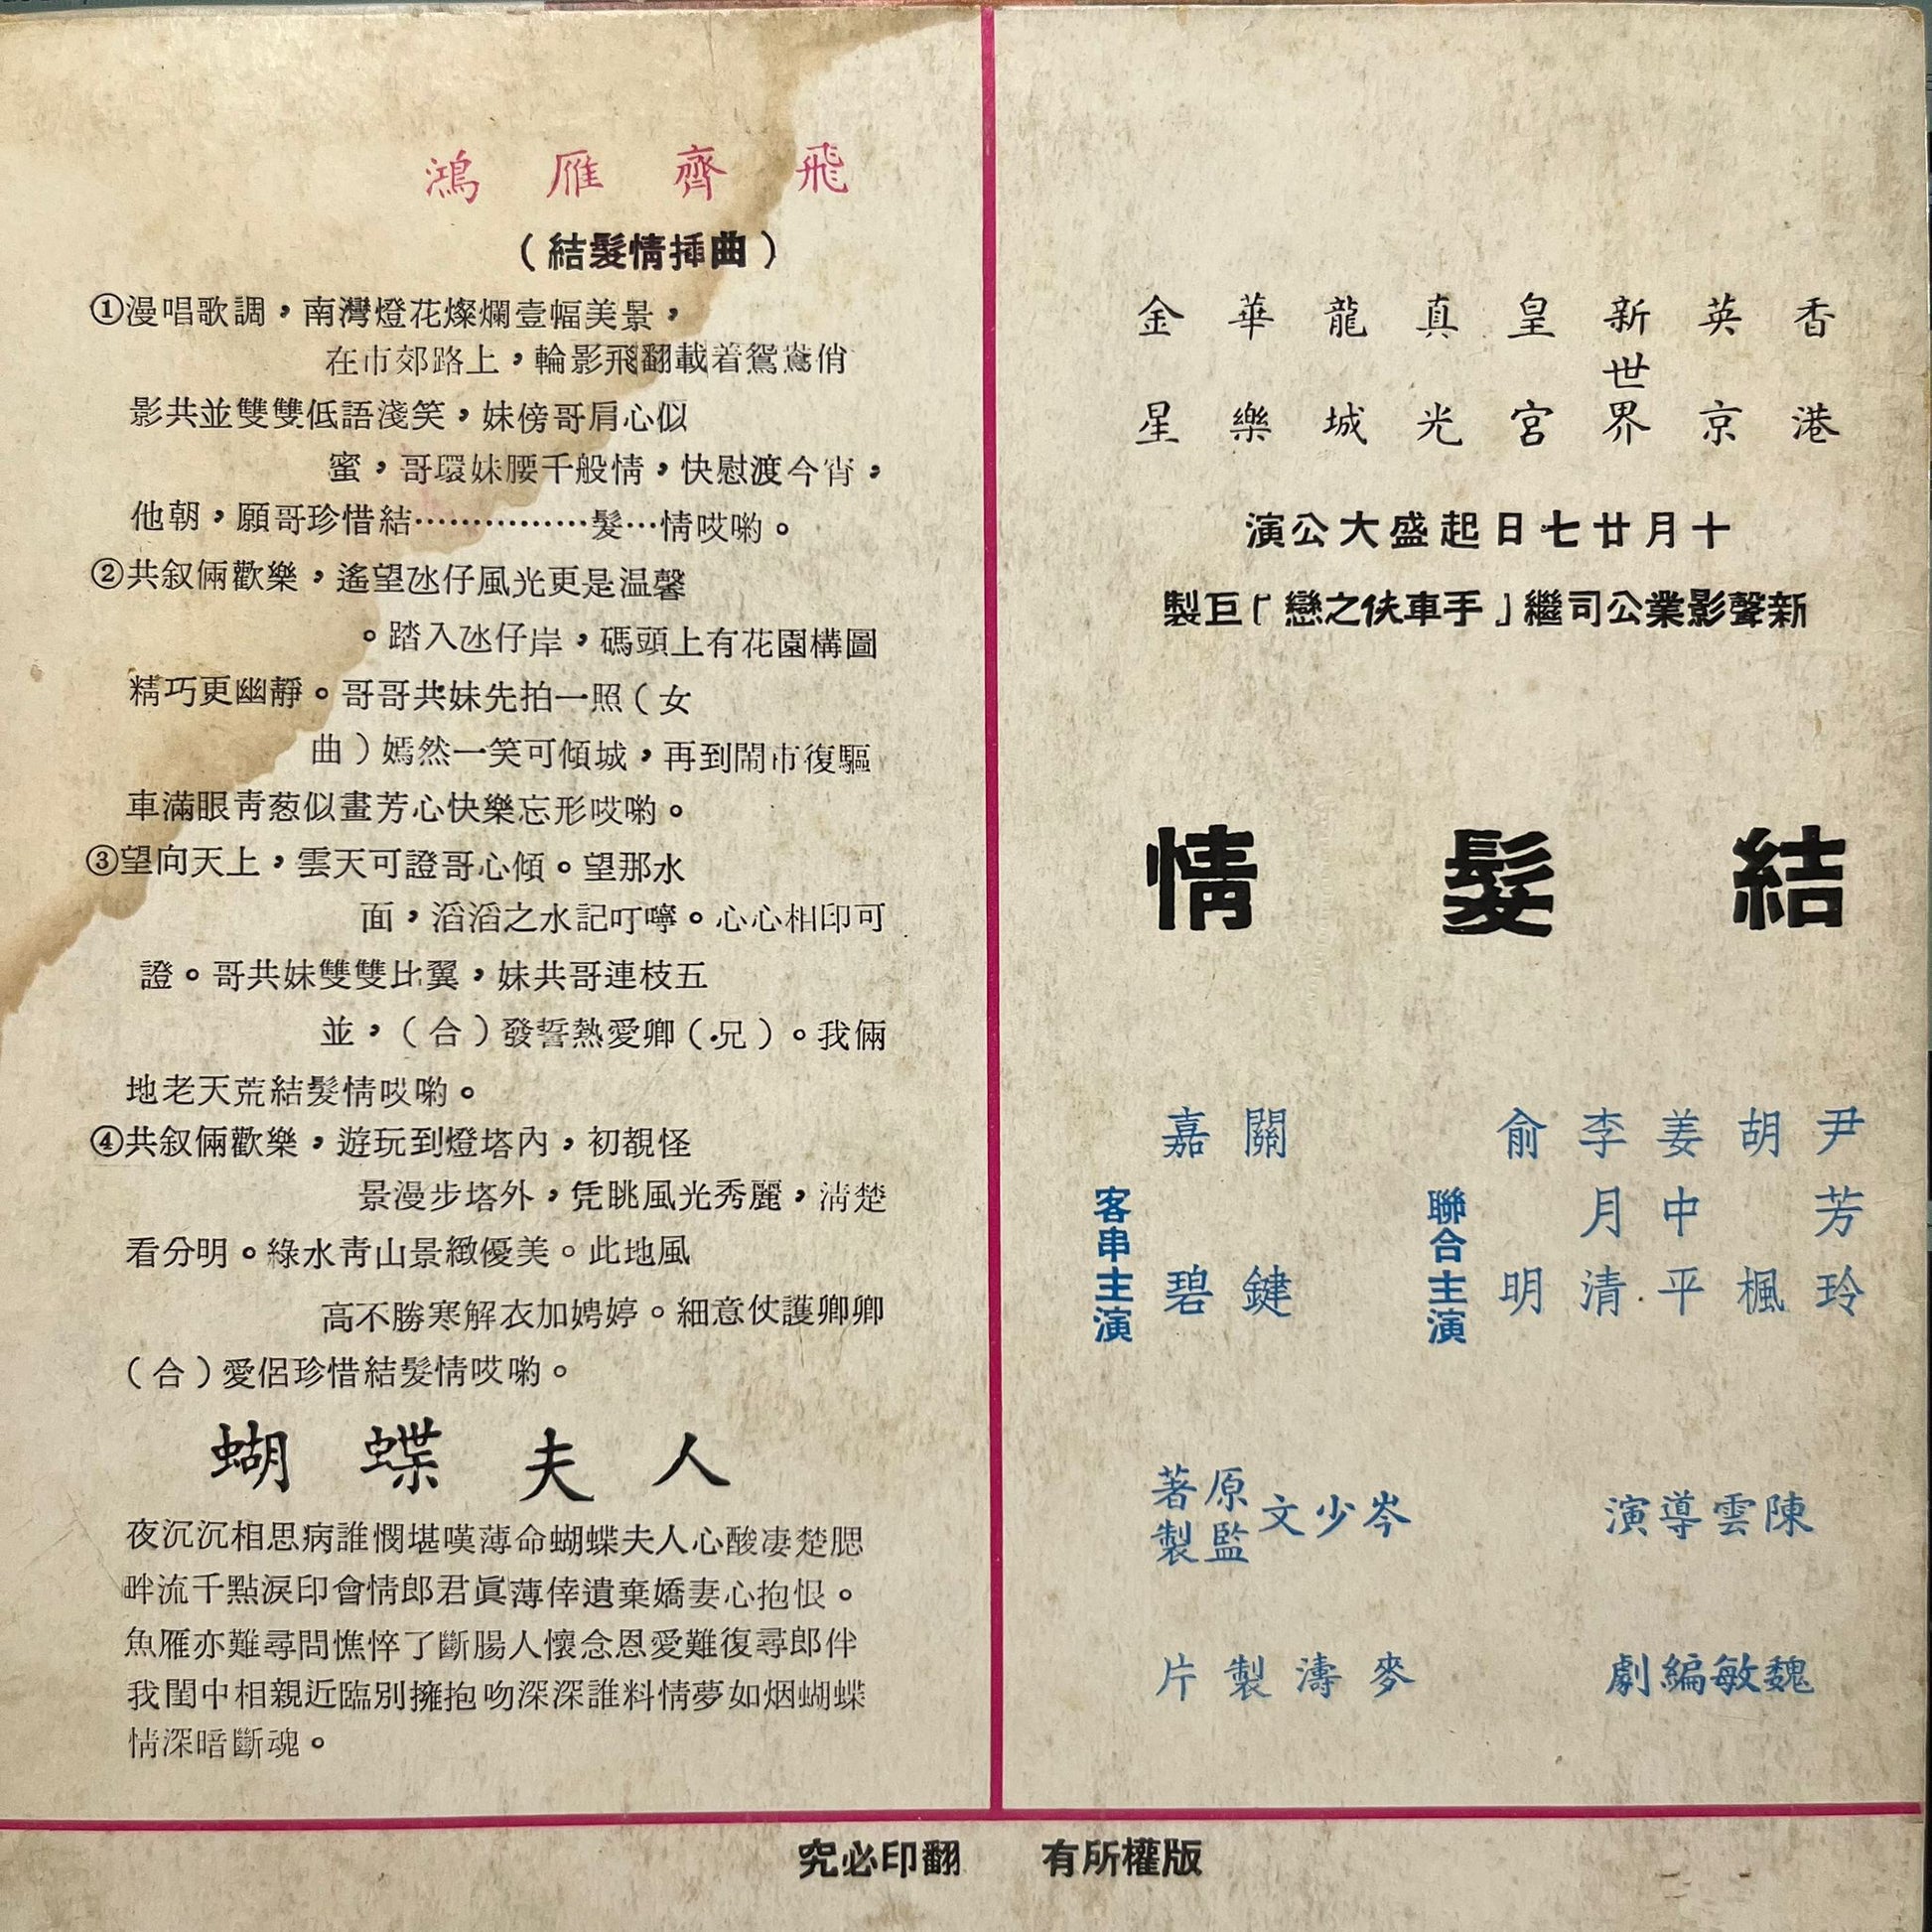 鴻雁齊飛
(結髮情揷曲)
①漫唱歌調，南灣燈花燦爛壹幅美景，
在市郊路上，輪影飛翻載着鴛鴦俏
影共並雙雙低語淺笑，妹傍哥肩心似
蜜，哥環妹腰千般情，快慰渡今宵，
他朝，願哥珍惜結……………髮…情哎喲。
②共叙倆歡樂，遙望氹仔風光更是温馨
。踏入氹仔岸，碼頭上有花園構圖
精巧更幽靜。哥哥共妹先拍一照(女
曲)嫣然一笑可傾城，再到鬧市復驅
車滿眼靑葱似畫芳心快樂忘形哎喲。
③望向天上，雲天可證哥心傾。望那水
面，滔滔之水記叮嚀。心心相印可
證。哥共妹雙雙比翼，妹共哥連枝五
並，(合)發誓熱愛卿(兄)。我倆
地老天荒結髮情哎喲。
④共叙倆歡樂，遊玩到燈塔內，初覩怪
景漫步塔外，凭眺風光秀麗，淸楚
看分明。綠水靑山景緻優美。此地風
高不勝寒解衣加娉婷。細意仗護卿卿
(合)愛侶珍惜結髮情哎喲。
蝴蝶夫人
夜沉沉相思病誰憫堪嘆薄命蝴蝶夫人心酸凄楚腮
畔流千點淚印會情郎君眞薄倖遺棄嬌妻心抱恨。
魚雁亦難尋問憔悴了斷腸人懷念恩愛難復尋郎伴
我閨中相親近臨別擁抱吻深深誰料情夢如烟蝴蝶
情深暗斷魂。
香港
英京
新世界
皇宮
真光
龍城
華樂
金星
十月廿七日起盛大公演
新聲影業公司繼「手車伕之戀」巨製
結髮情
尹芳玲
胡楓
姜中平
李月清
俞明
聯合主演
關鍵
嘉碧
客串主演
陳雲導演
岑少文原著監製
魏敏編劇
麥濤製片
版權所有 翻印必究